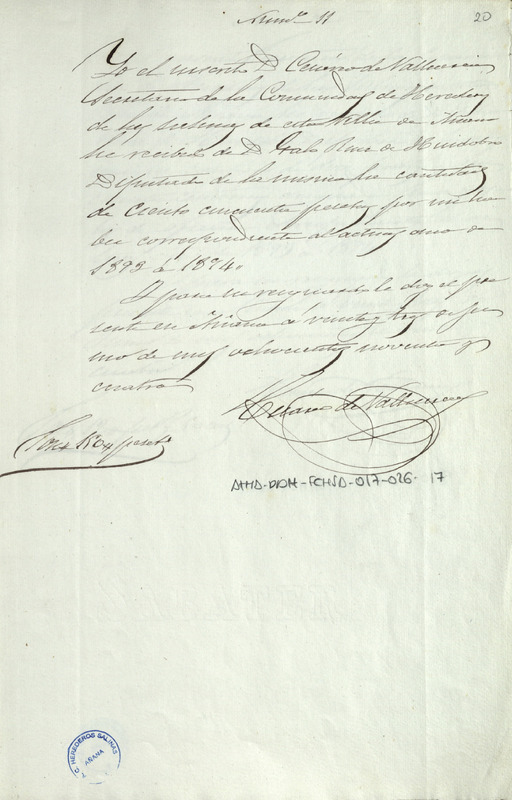 Num.º 11
20
Yo el infrascrito D. Cenáro de Valluerca
Secretario de la Comunidad de Herederos
de las Salinas de esta Villa de Añana
he recibido de D. Galo Ruiz de Huidobro
Diputado de la misma la cantidad
de ciento cincuenta pesetas por mi ha
ber correspondiente al actual año de
1893 á 1894.
Y para su resguardo le doy el pre
sente en Añana á veinte y tres de Ju
nio de mil ochocientos noventa y
cuatro
de Valluerca
Son 150 pesets
AHHA-DIDM-FCHSD-017-026-17
HEREDEROS SALINAS
AÑANA